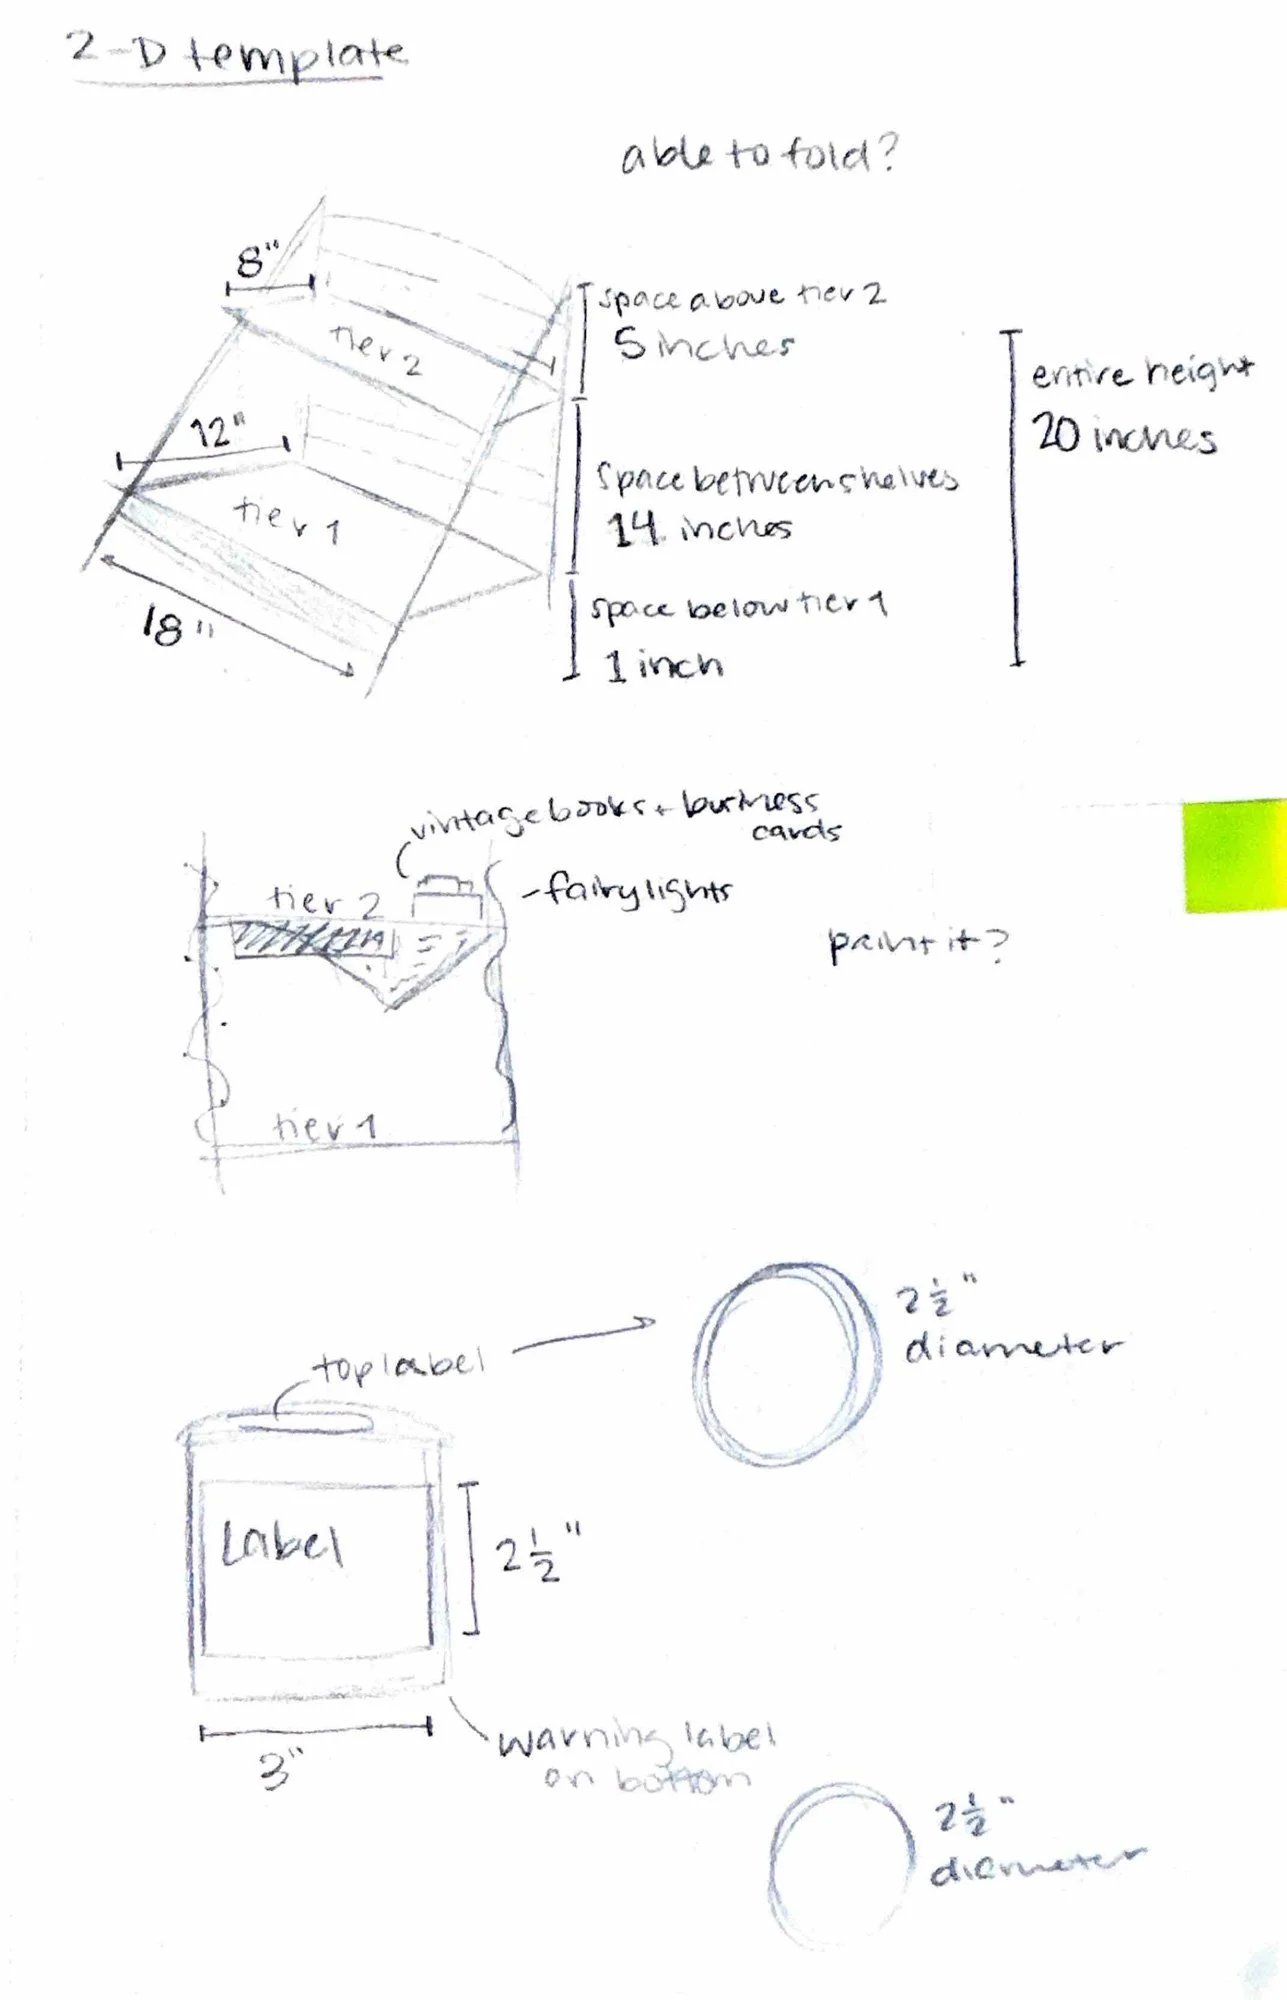 2-D template
able to fold?
8"
tier 2
space above tier 2
5 inches
entire height
20 inches
12"
tier 1
space between shelves
14 inches
18"
space below tier 1
1 inch
vintage books + business
cards
tier 2
-fairy lights
paint it?
tier 1
2 1/2"
diameter
top label
Label
2 1/2"
3"
warning label
on bottom
2 1/2"
diameter